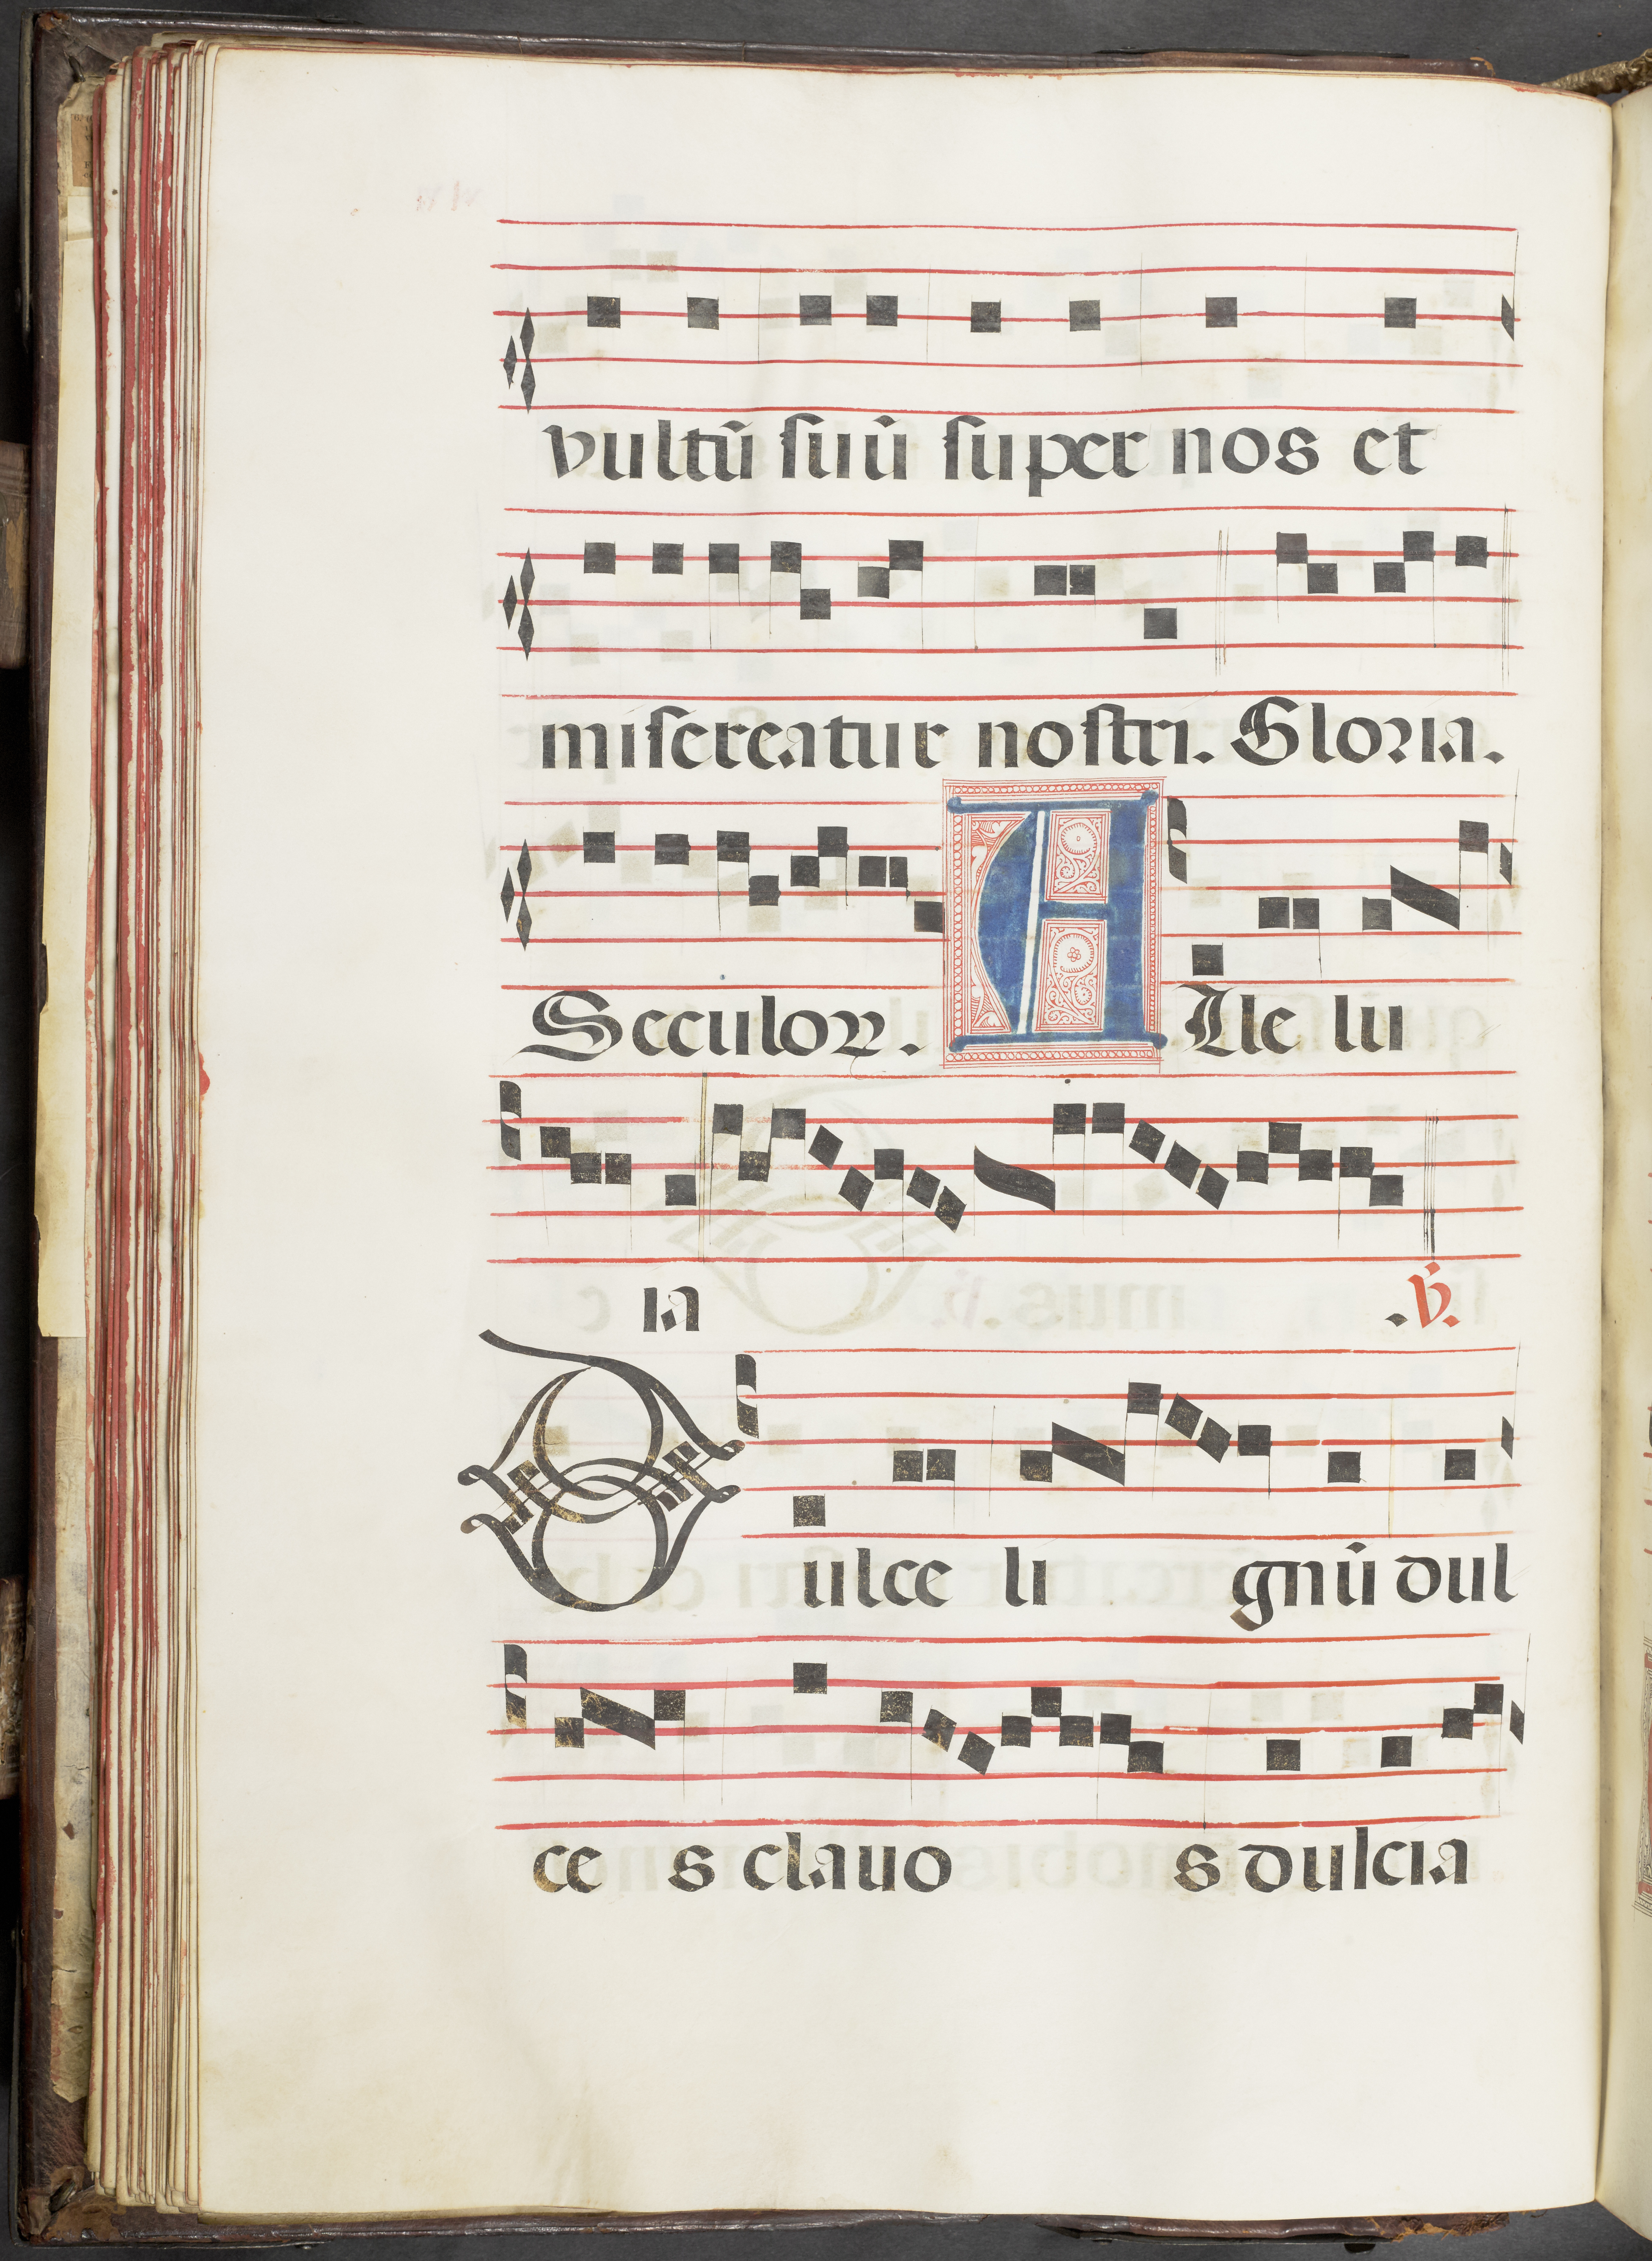 vultū suū super nos et
misereatur nostri. Gloria.
Seculoꝝ. A Lle lu
ia .℣.
Dulce li gnū dul
ce s clauo s dulcia